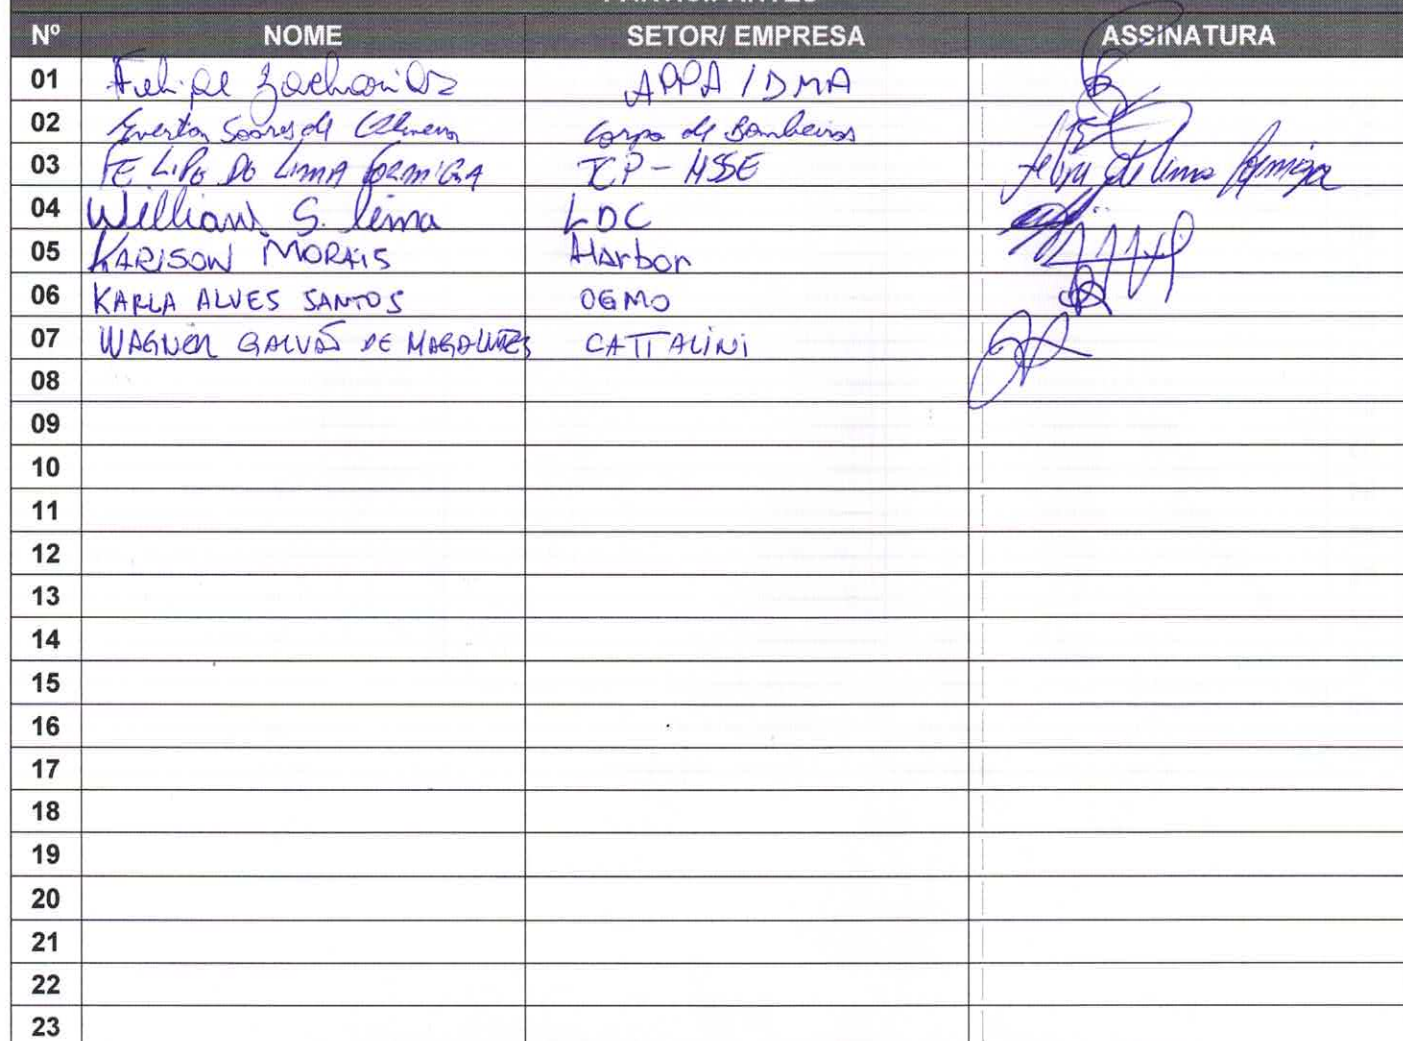 PARTICIPANTES
Nº NOME SETOR/ EMPRESA ASSINATURA
01 Felipe Zacharias APPA / DMA
02 Everton Soares de Oliveira Corpo de Bombeiros
03 FELIPE DE LIMA FORMIGA TCP - HSSE Felipe de Lima Formiga
04 William S. Lima LDC
05 KARISON MORAIS Harbor
06 KARLA ALVES SANTOS OGMO
07 WAGNER GALVÃO DE MAGALHÃES CATTALINI
08
09
10
11
12
13
14
15
16
17
18
19
20
21
22
23